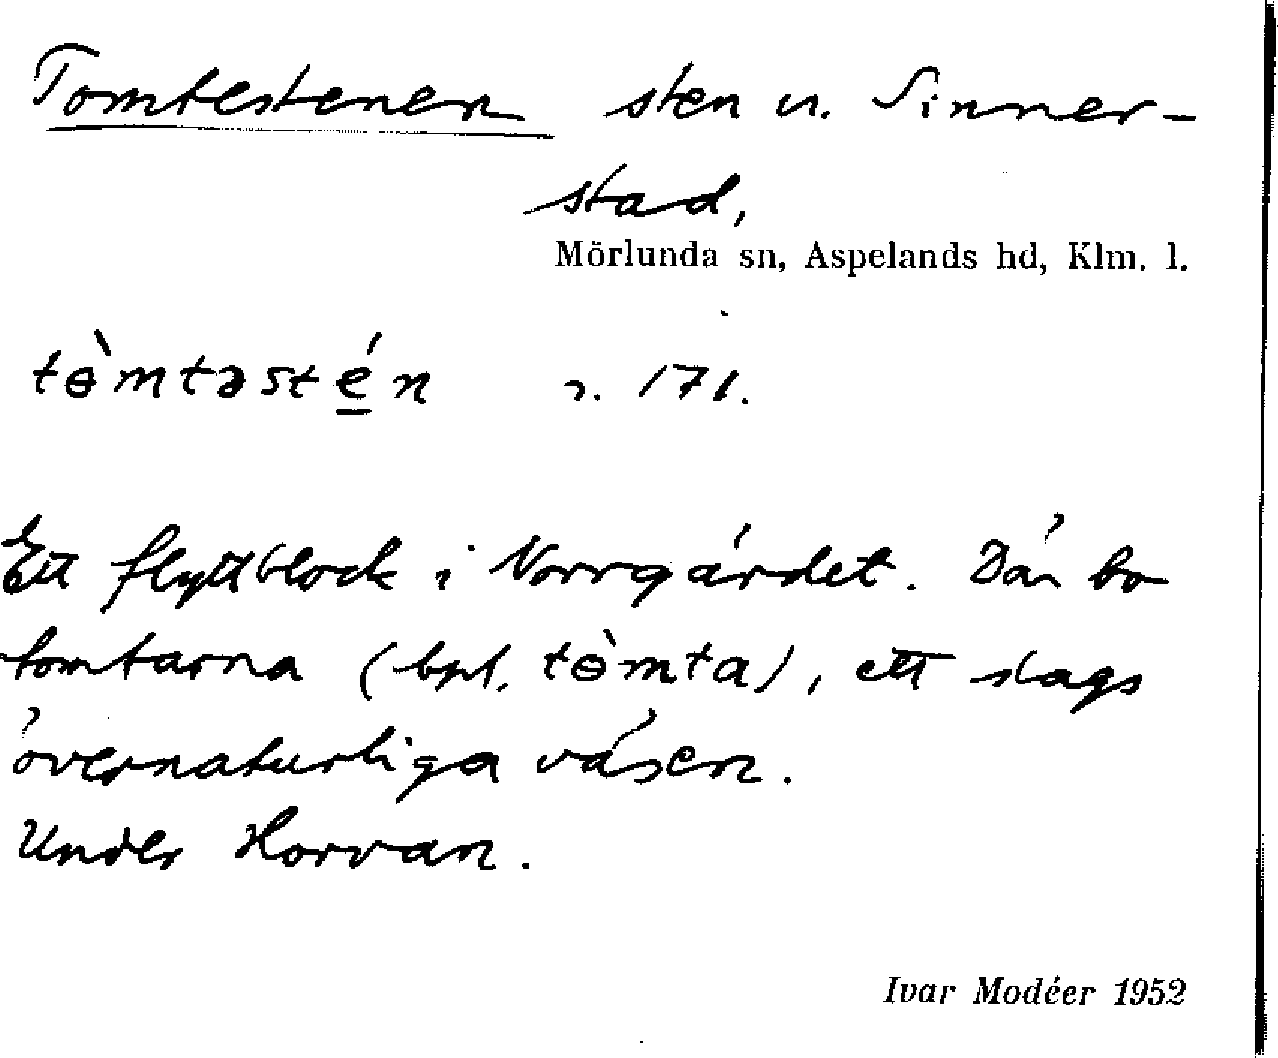 Tomtestenen sten u. Sinner-
stad,
Mörlunda sn, Aspelands hd, Klm. l.
tɵ̀mtəsté̱n r. 171.
Ett flyttblock i Norrgärdet. Där bo
tomtarna (bpl. tɵ̀mta), ett slags
övernaturliga väsen.
Under Horvan.
Ivar Modéer 1952